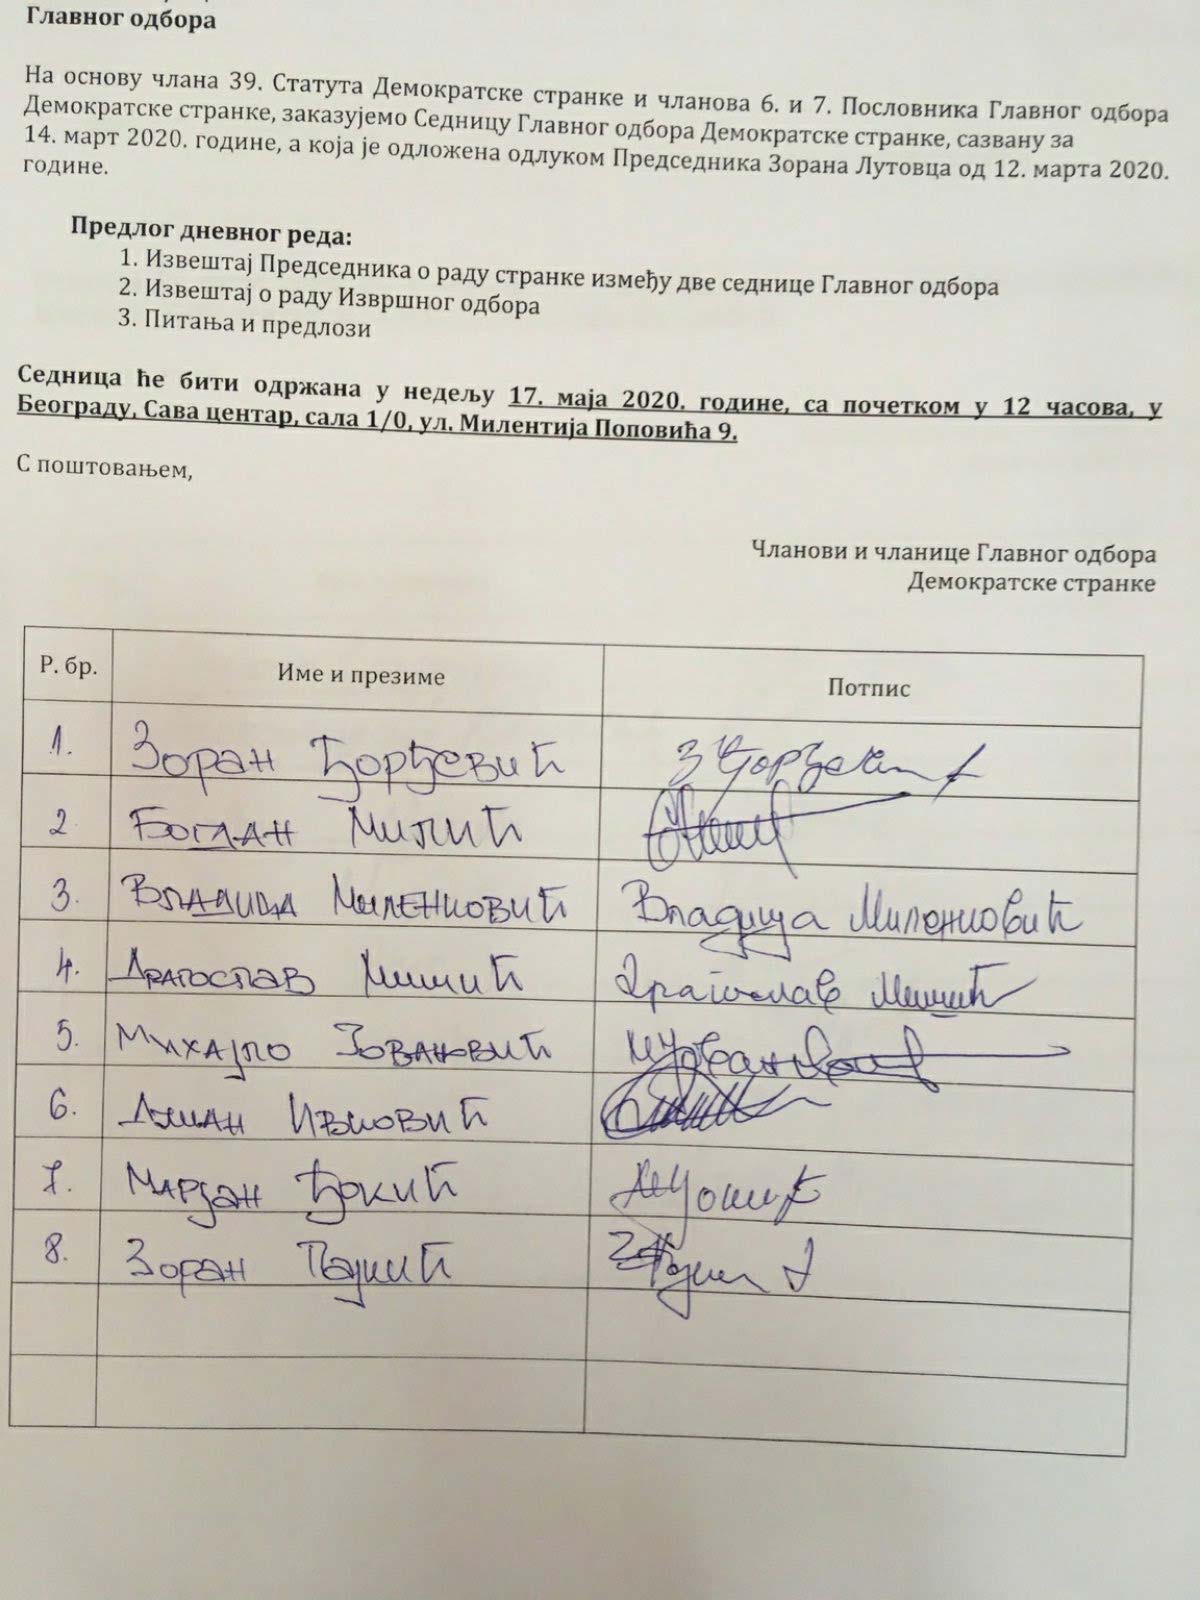 Главног одбора
На основу члана 39. Статута Демократске странке и чланова 6. и 7. Пословника Главног одбора
Демократске странке, заказујемо Седницу Главног одбора Демократске странке, сазвану за
14. март 2020. године, а која је одложена одлуком Председника Зорана Лутовца од 12. марта 2020.
године.
Предлог дневног реда:
1. Извештај Председника о раду странке између две седнице Главног одбора
2. Извештај о раду Извршног одбора
3. Питања и предлози
Седница ће бити одржана у недељу 17. маја 2020. године, са почетком у 12 часова, у
Београду, Сава центар, сала 1/0, ул. Милентија Поповића 9.
С поштовањем,
Чланови и чланице Главног одбора
Демократске странке
Р. бр. Име и презиме Потпис
1. Зоран Ђорђевић З Ђорђевић
2 Богдан Милић
3. Владица Миленковић Владица Миленковић
4. Драгослав Мишић Драгослав Мишић
5. Михајло Јовановић
6. Ивковић
7. Марјан Ђокић
8. Зоран Пајкић